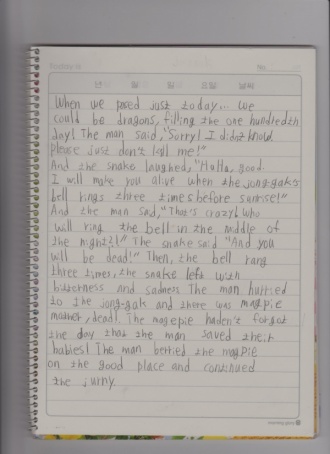 No.
년 월 일 요일 날씨
When we posed just today... we
could be dragons, filling the one hundredth
day! The man said, "Sorry! I didn't know.
please just don't kill me!"
And the snake laughed, "Haha, good.
I will make you alive when the jong-gak's
bell rings three times before sunrise!"
And the man said, "That's crazy! who
will ring the bell in the middle of
the night?!" The snake said "And you
will be dead!" Then, the bell rang
three times, the snake left with
bitterness and sadness. The man hurried
to the jong-gak and there was magpie
mother, dead! The magepie haden't forgot
the day that the man saved their
babies! The man berried the magpie
on the good place and continued
the jurny.
morning glory